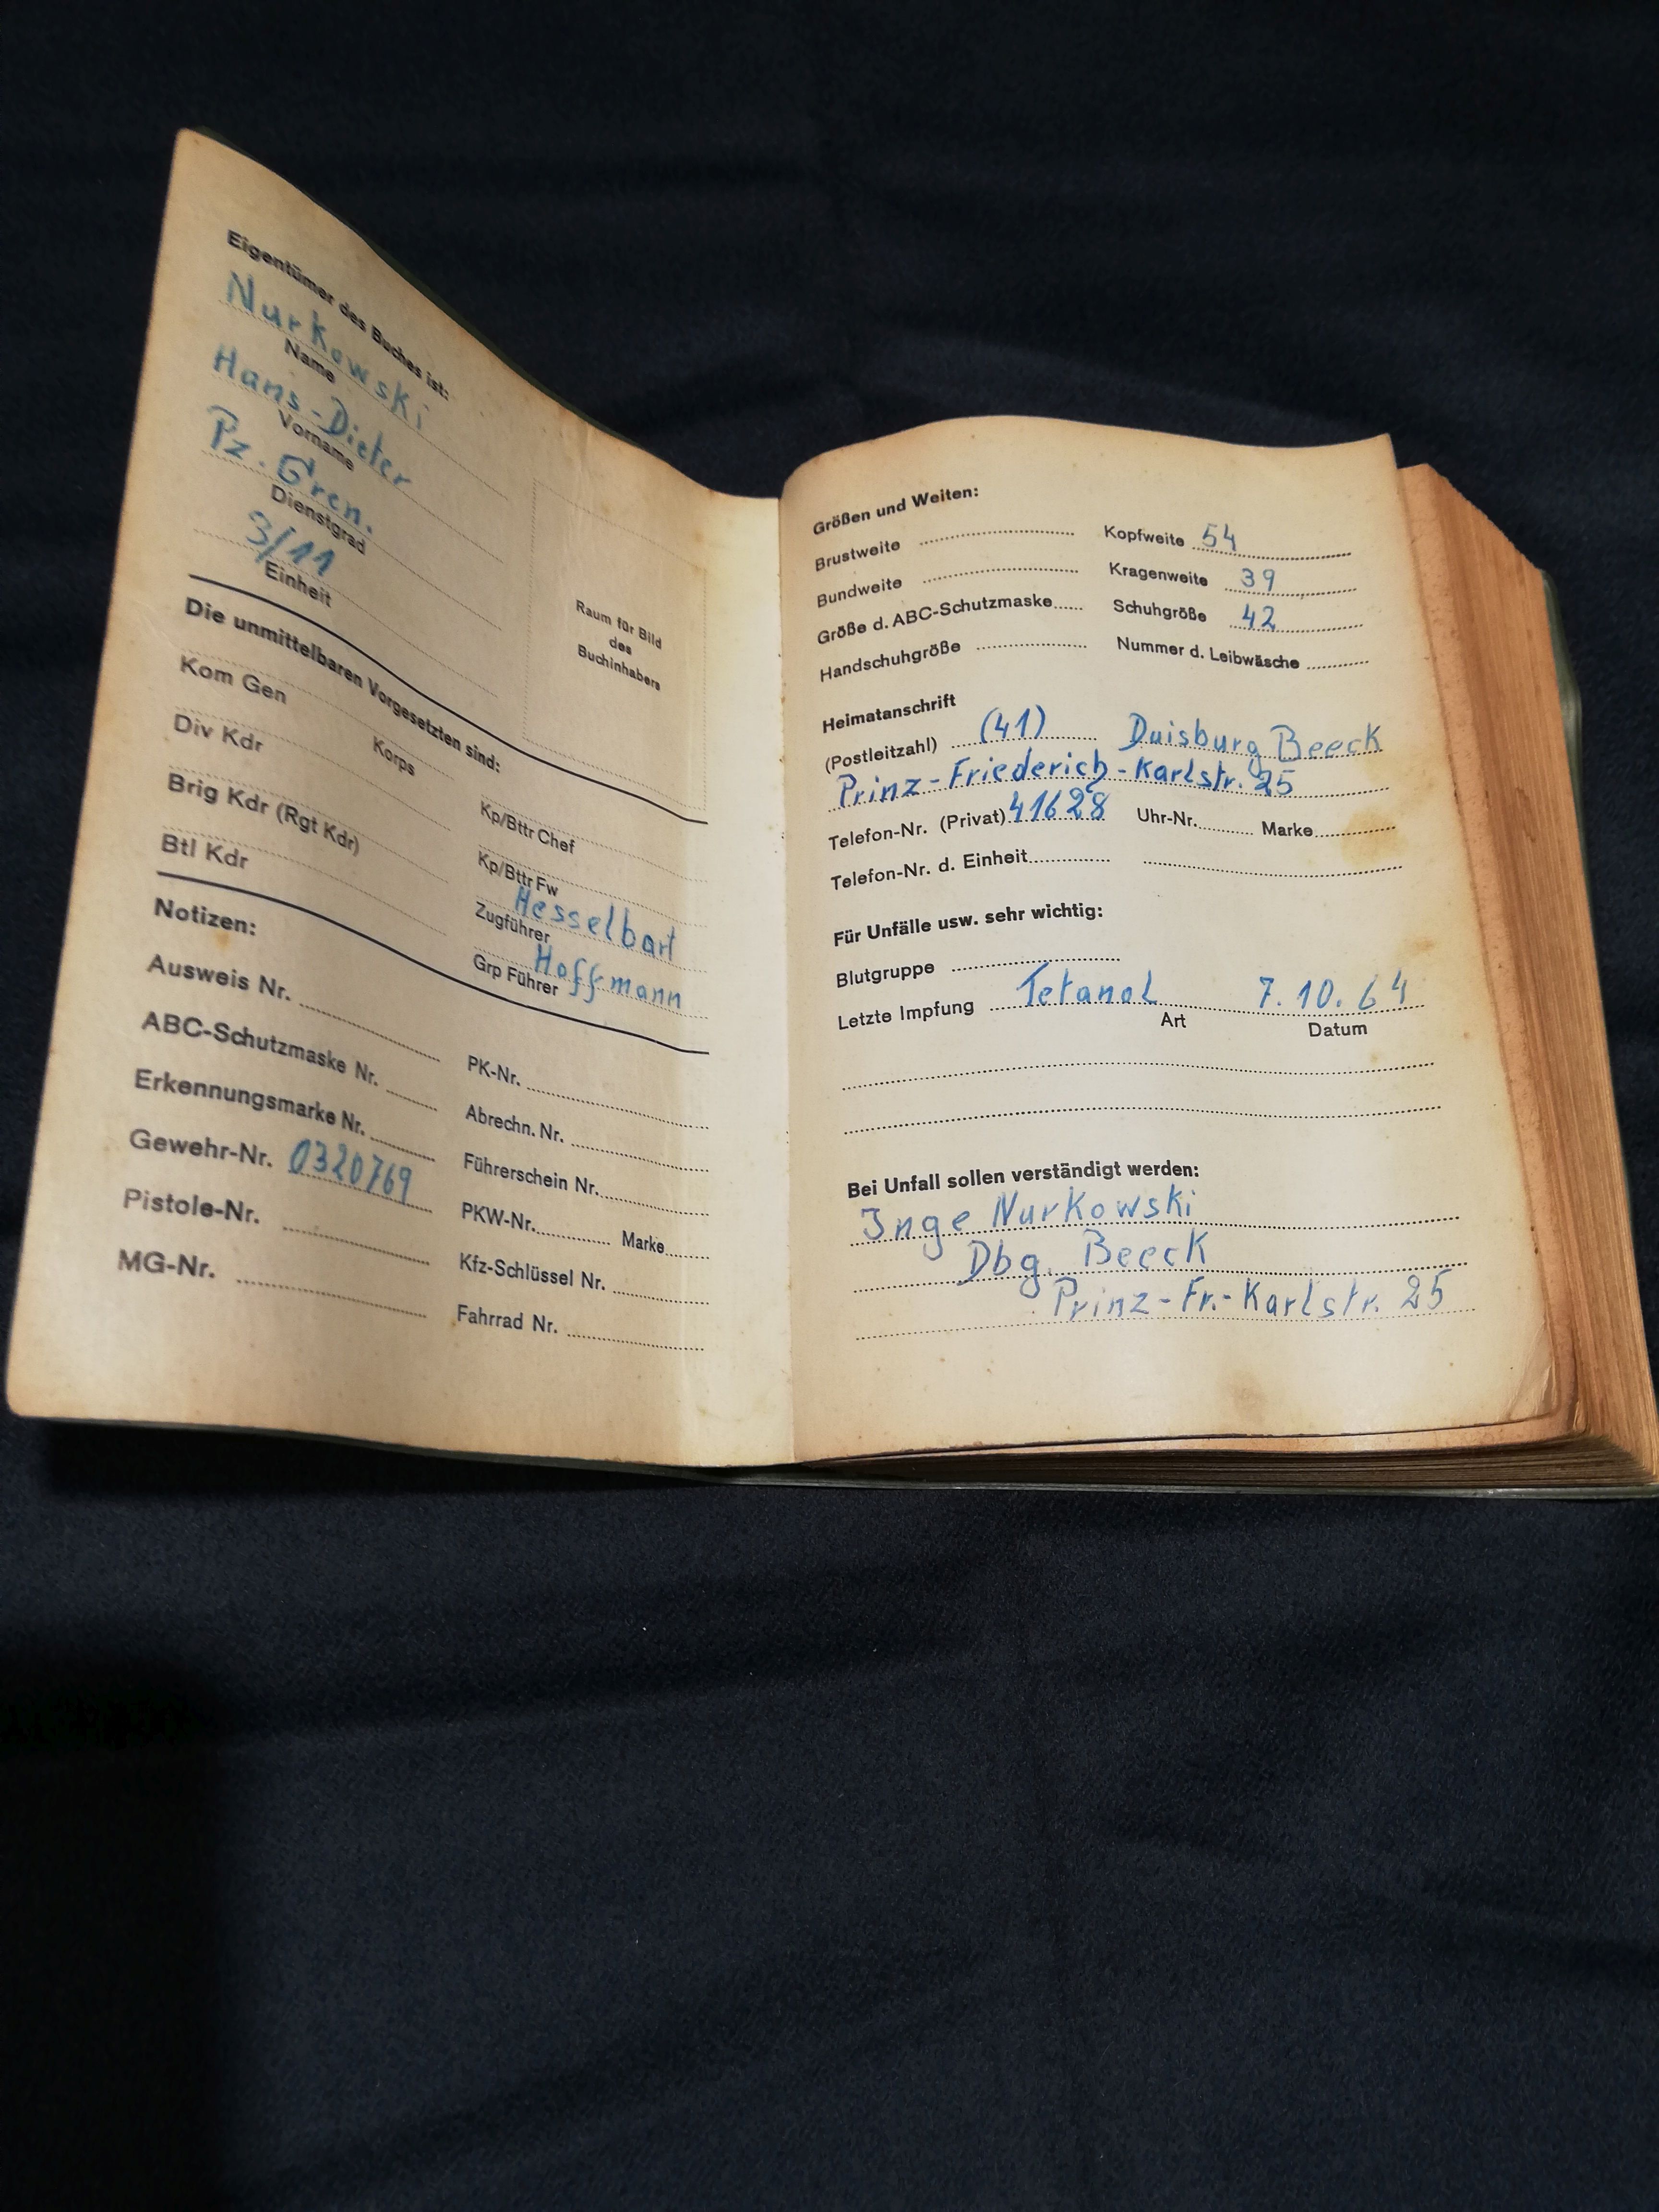 Eigentümer des Buches ist:
Nurkowski
Name
Hans-Dieter
Vorname
Pz. Gren.
Dienstgrad
3/11
Einheit
Raum für Bild
des
Buchinhabers
Die unmittelbaren Vorgesetzten sind:
Kom Gen
Korps
Div Kdr
Kp/Bttr Chef
Brig Kdr (Rgt Kdr)
Kp/Bttr Fw
Hesselbart
Btl Kdr
Zugführer
Hoffmann
Grp Führer
Notizen:
Ausweis Nr.
PK-Nr.
ABC-Schutzmaske Nr.
Abrechn. Nr.
Erkennungsmarke Nr.
Führerschein Nr.
Gewehr-Nr. 0320769
PKW-Nr. Marke
Pistole-Nr.
Kfz-Schlüssel Nr.
MG-Nr.
Fahrrad Nr.
Größen und Weiten:
Brustweite Kopfweite 54
Bundweite Kragenweite 39
Größe d. ABC-Schutzmaske Schuhgröße 42
Handschuhgröße Nummer d. Leibwäsche
Heimatanschrift
(Postleitzahl) (41) Duisburg Beeck
Prinz-Friederich-Karlstr. 25
Telefon-Nr. (Privat) 41628 Uhr-Nr. Marke
Telefon-Nr. d. Einheit
Für Unfälle usw. sehr wichtig:
Blutgruppe
Letzte Impfung Tetanol 7.10.64
Art Datum
Bei Unfall sollen verständigt werden:
Inge Nurkowski
Dbg. Beeck
Prinz-Fr.-Karlstr. 25